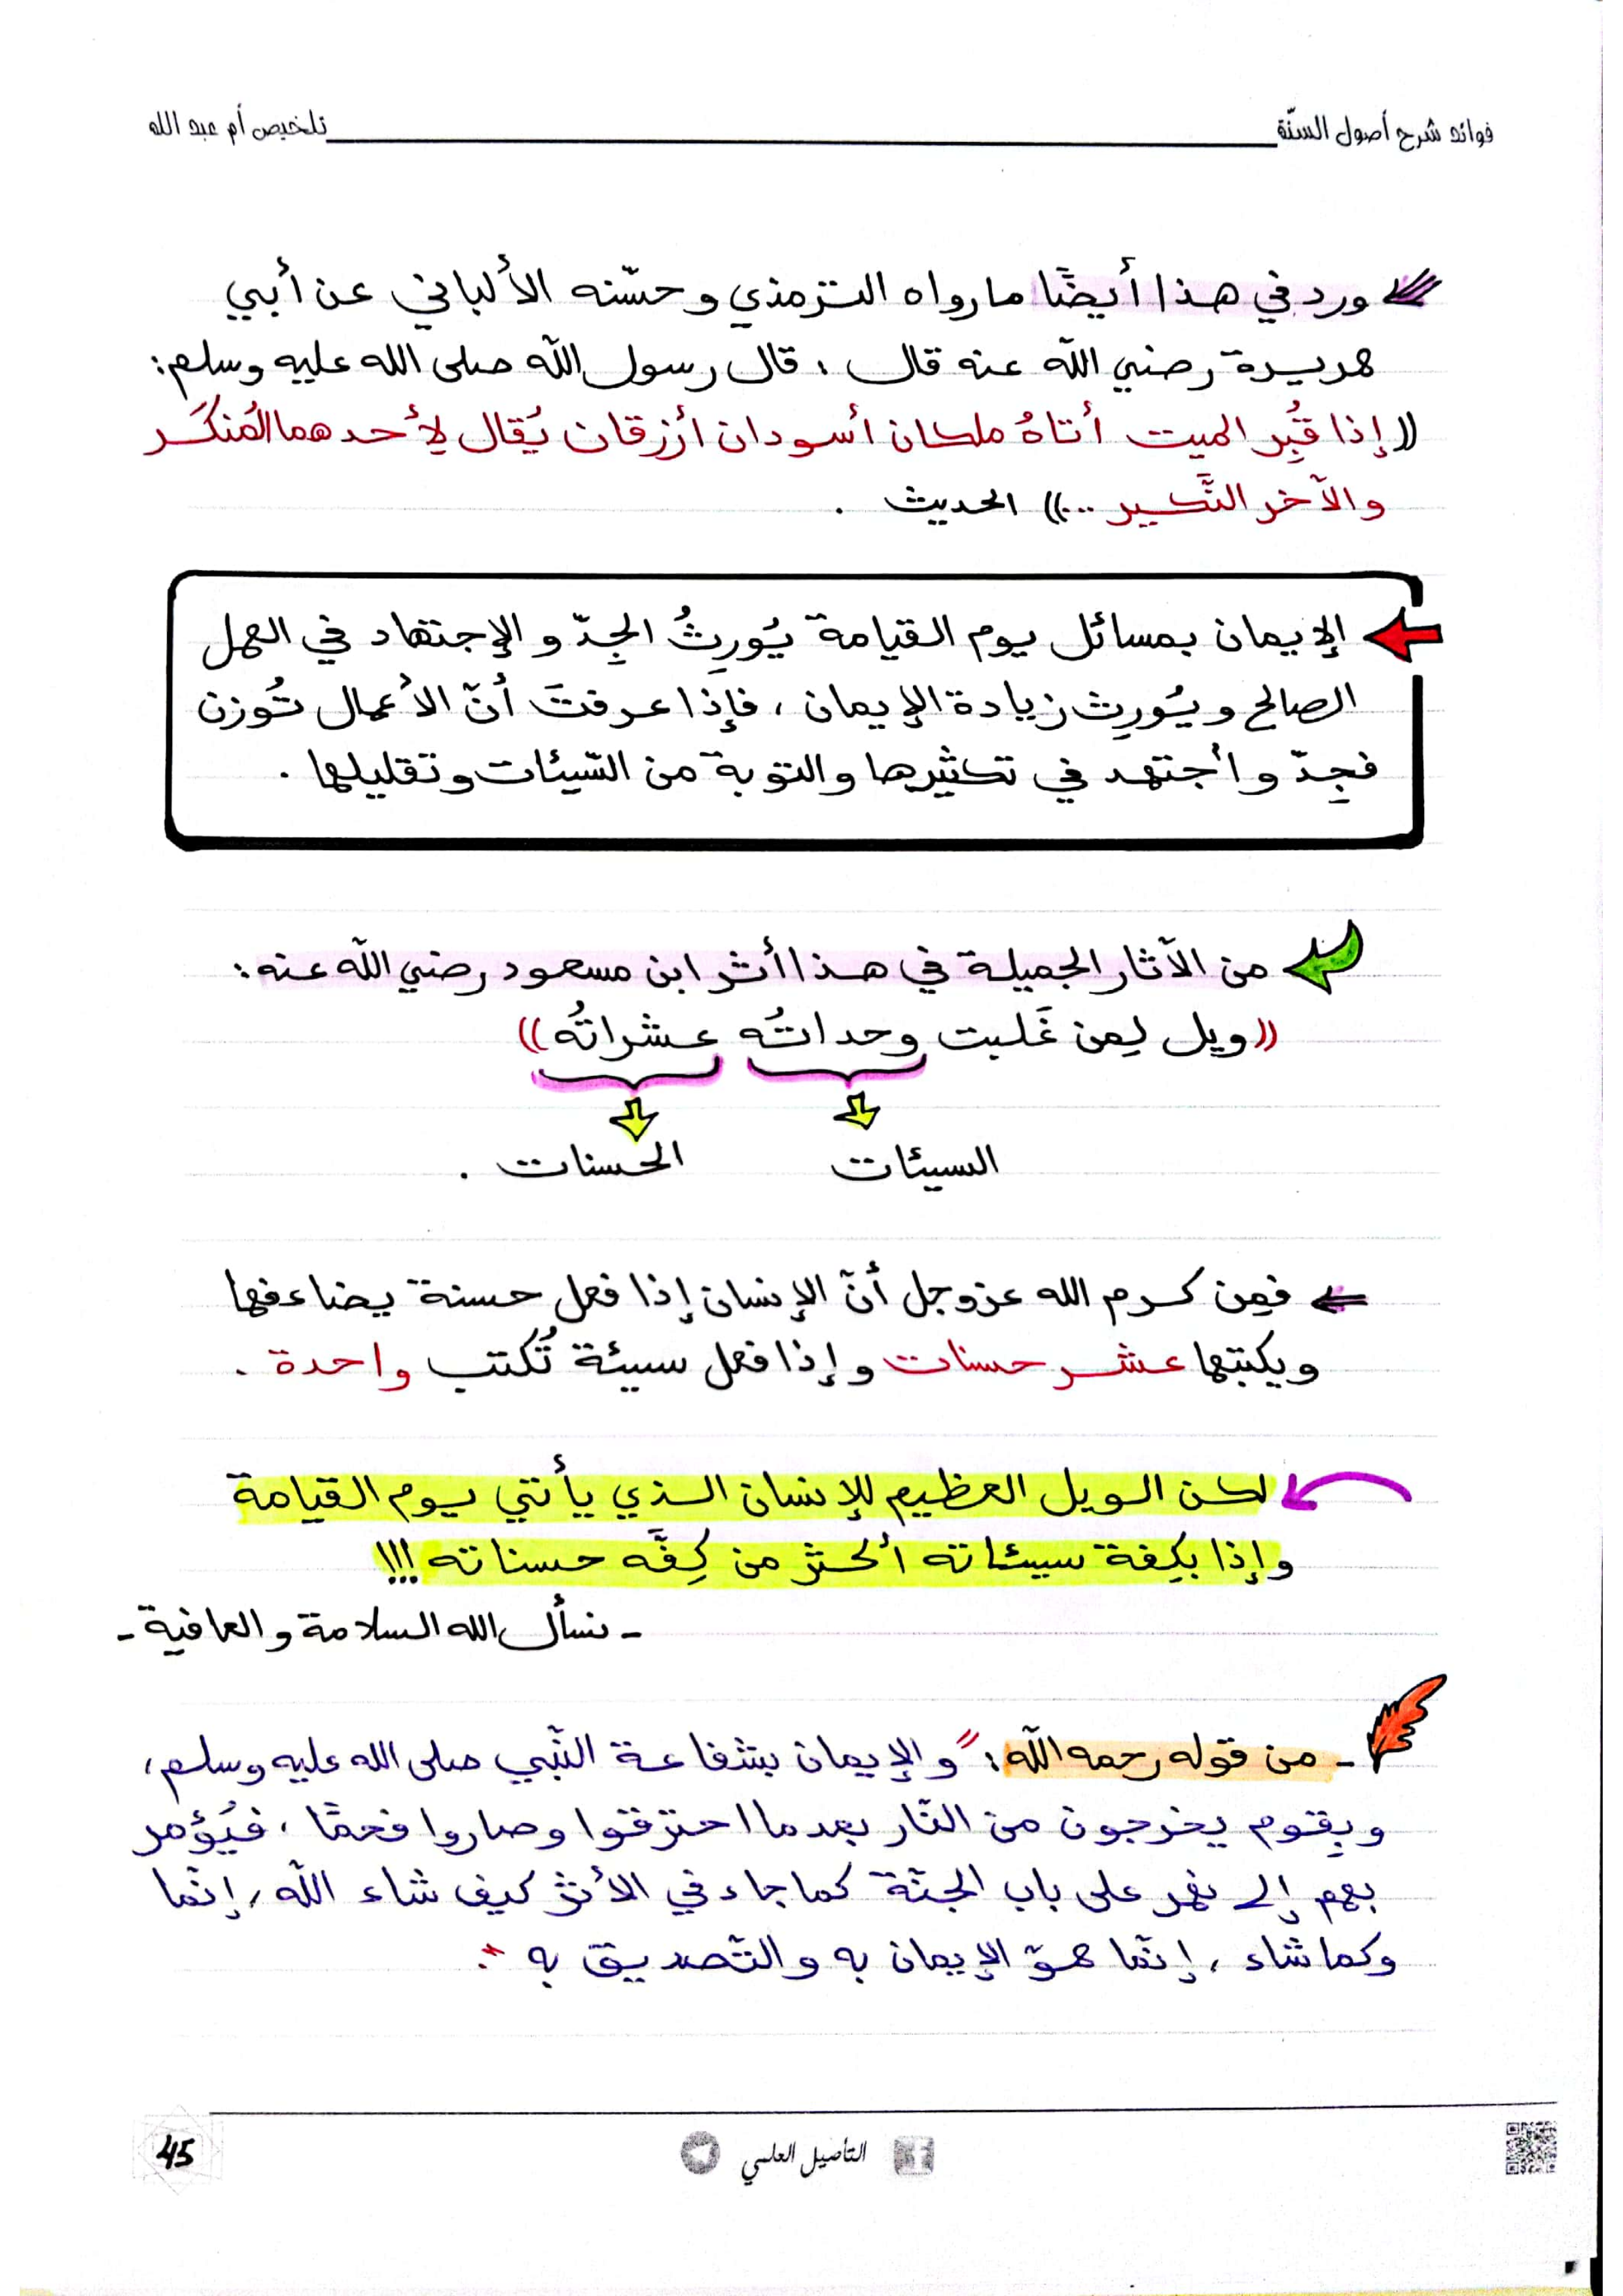 فوائد شرح أصول السنّة تلخيص أم عبد الله
ورد في هذا أيضًا ما رواه الترمذي وحسّنه الألباني عن أبي
هريرة رضي اللّه عنه قال : قال رسول اللّه صلى الله عليه وسلم :
((إذا قُبِر الميت أتاهُ ملكان أسودان أزرقان يُقال لأحدهما المُنكَر
والآخر النَّكير ...)) الحديث .
الإيمان بمسائل يوم القيامة يُورِثُ الجِدّ والإجتهاد في العمل
الصالح ويُورِث زيادة الإيمان ، فإذا عرفتَ أنّ الأعمال تُوزن
فجِدّ وأجتهد في تكثيرها والتوبة من السّيئات وتقليلها .
من الآثار الجميلة في هذا أثر ابن مسعود رضي اللّه عنه :
((ويل لِمن غَلبت وحداتُه عشراتُه))
السيئات الحسنات .
فمِن كرم الله عزوجل أنّ الإنسان إذا فعل حسنة يضاعفها
ويكتبها عشر حسنات وإذا فعل سيئة تُكتب واحدة .
لكن الويل العظيم للإنسان الذي يأتي يوم القيامة
وإذا بكِفة سيئاته أكثر من كِفَّه حسناته !!!
- نسأل الله السلامة والعافية -
- من قوله رحمه اللّه : " والإيمان بشفاعة النّبي صلى الله عليه وسلم ،
وبِقوم يخرجون من النّار بعدما احترقوا وصاروا فحمًا ، فيُؤمر
بهم إلى نهر على باب الجنّة كما جاء في الأثر كيف شاء اللّه ، إنّما
وكما شاء ، إنّما هوّ الإيمان به والتّصديق به ".
التأصيل العلمي
45